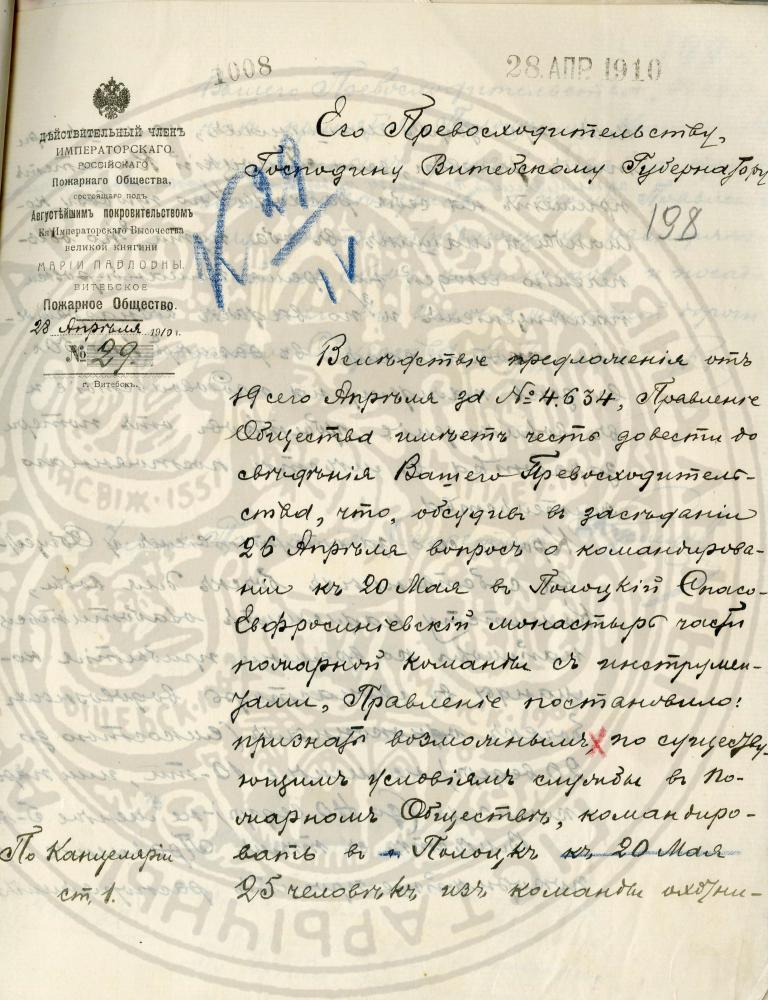 1008
28. АПР. 1910
ДѢЙСТВИТЕЛЬНЫЙ ЧЛЕНЪ
ИМПЕРАТОРСКАГО
РОССІЙСКАГО
Пожарнаго Общества,
СОСТОЯЩАГО ПОДЪ
Августѣйшимъ покровительствомъ
Ея Императорскаго Высочества
ВЕЛИКОЙ КНЯГИНИ
МАРІИ ПАВЛОВНЫ.
ВИТЕБСКОЕ
Пожарное Общество.
28 Апрѣля 1910 г.
№ 29.
г. Витебскъ.
Его Превосходительству,
Господину Витебскому Губернатору
29
IV
198
Вслѣдствіе предложенія отъ
19 сего Апрѣля за № 4.634, Правленіе
Общества имѣетъ честь довести до
свѣдѣнія Вашего Превосходитель-
ства, что, обсудивъ въ засѣданіи
26 Апрѣля вопросъ о командирова-
ніи къ 20 Мая въ Полоцкій Спасо-
Евфросиніевскій монастырь части
пожарной команды съ инструмен-
тами, Правленіе постановило:
признать возможнымъ по существу-
ющимъ условіямъ службы въ По-
жарномъ Обществѣ, командиро-
вать въ Полоцкъ къ 20 Мая
25 человѣкъ изъ команды охотни-
По Канцеляріи
ст. 1.